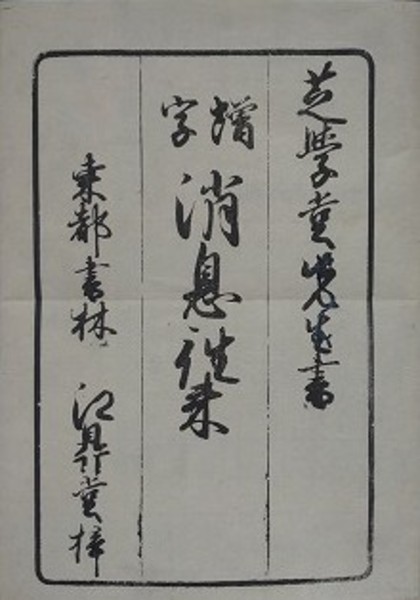 芝學堂先生書
増字
消息往来
東都書林 江 堂梓